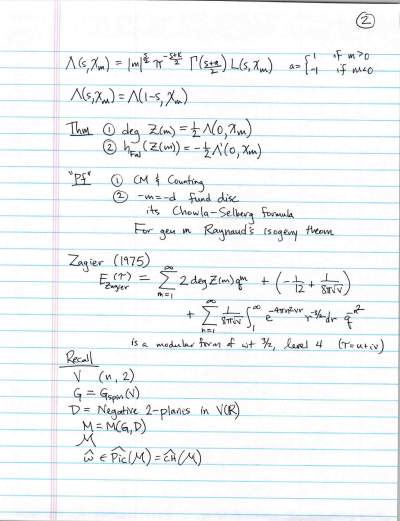 ②
Λ(s,χ_m) = |m|^{s/2} π^{-(s+a)/2} Γ((s+a)/2) L(s,χ_m)   a = { 1 if m>0
-1 if m<0
Λ(s,χ_m) = Λ(1-s, χ_m)
Thm ① deg Z(m) = ½ Λ(0, χ_m)
② h_Fal(Z(m)) = -½ Λ'(0, χ_m)
"Pf" ① CM & Counting
② -m=-d fund disc
its Chowla-Selberg formula
For gen m Raynaud's isogeny theorem
Zagier (1975)
E_Zagier(τ) = Σ_{m=1}^∞ 2 deg Z(m) q^m + (-1/12 + 1/(8π√v))
+ Σ_{n=1}^∞ 1/(8π√v) ∫_1^∞ e^{-4πn²vr} r^{-3/2} dr q^{-n²}
is a modular form of wt 3/2, level 4 (τ=u+iv)
Recall
V (n, 2)
G = Gspin(V)
D = Negative 2-planes in V(R)
M = M(G,D)
ℳ
ω̂ ∈ P̂ic(ℳ) = ĈH(ℳ)